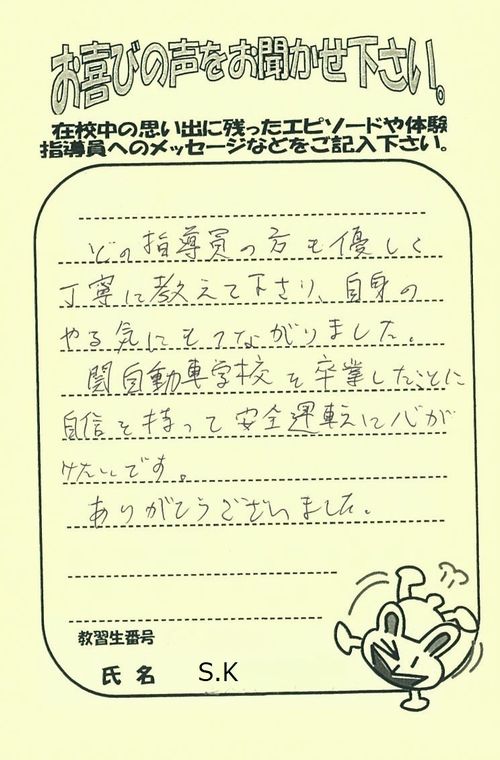 お喜びの声をお聞かせ下さい。
在校中の思い出に残ったエピソードや体験
指導員へのメッセージなどをご記入下さい。
どの指導員の方も優しく
丁寧に教えて下さり、自身の
やる気にもつながりました。
関自動車学校を卒業したことに
自信を持って安全運転に心が
けたいです。
ありがとうございました。
教習生番号
氏名 S.K